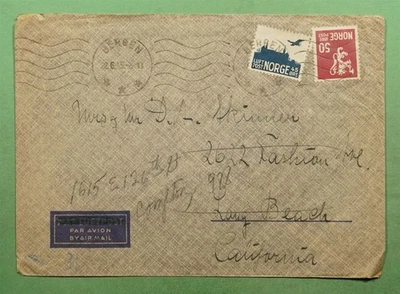 BERGEN
LUFT
POST NORGE 45
ØRE
NORGE
50
Mrs
D. L. Skinner
2622 Fashion Ave.
Long Beach
California
1615 E 126th St
Compton
PAR AVION
BY AIR MAIL